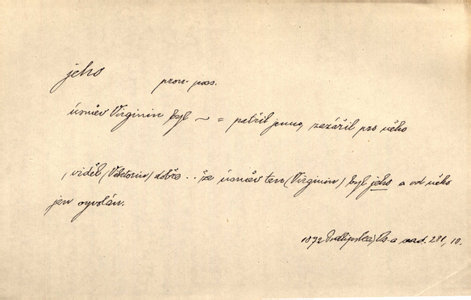 jeho
pron. pos.
úsměv Virginin byl ~ = patřil jemu, zazářil pro něho
, viděl (Viktorin) dobře .. že úsměv ten (Virginin) byl jeho a od něho
jen vyvolán.
1872 Podlipská, Os. a nad. 281, 10.